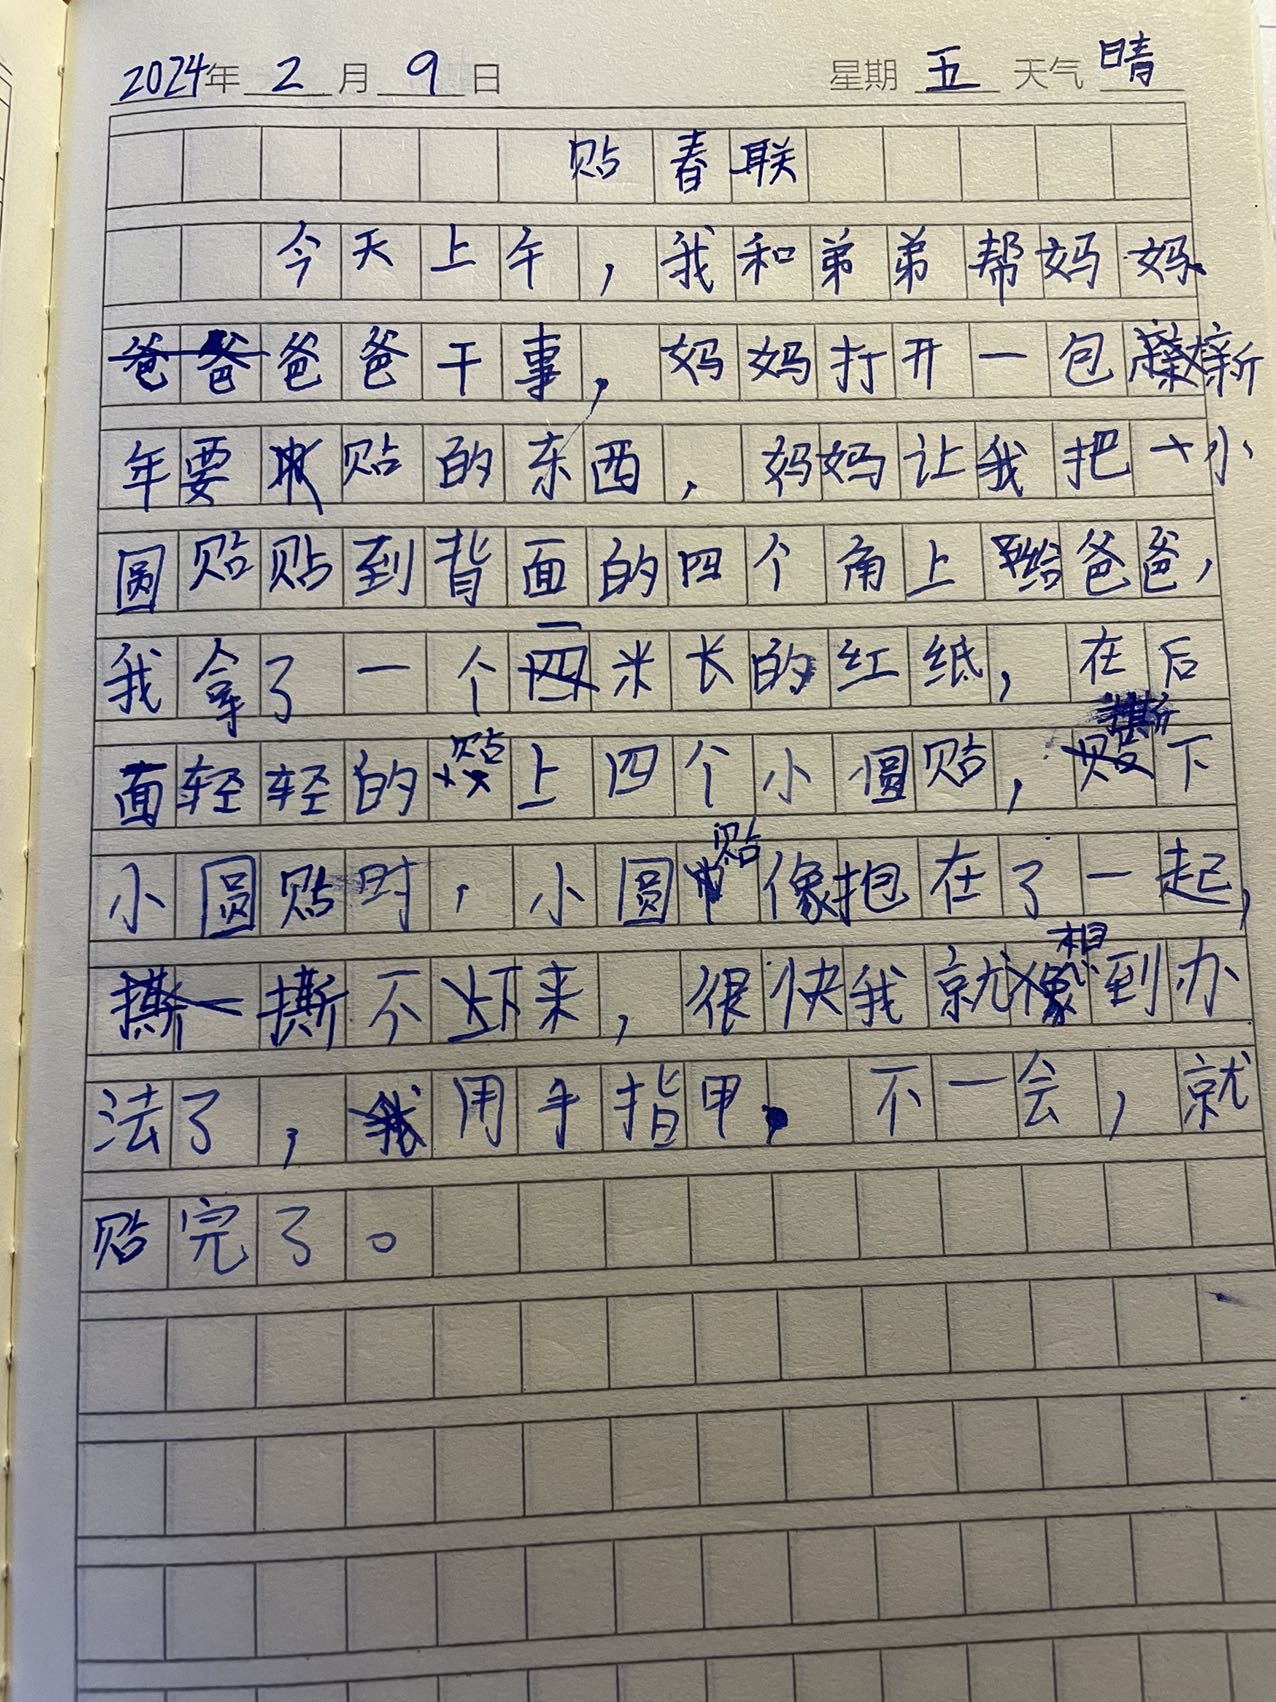 2024年 2 月 9 日 星期 五 天气 晴
贴春联
今天上午，我和弟弟帮妈妈、
爸爸干事，妈妈打开一包新
年要贴的东西，妈妈让我把小
圆贴贴到背面的四个角上给爸爸，
我拿了一个二米长的红纸，在后
面轻轻的贴上四个小圆贴，撕下
小圆贴时，小圆贴像抱在了一起，
撕不下来，很快我就想到办
法了，用手指甲，不一会，就
贴完了。